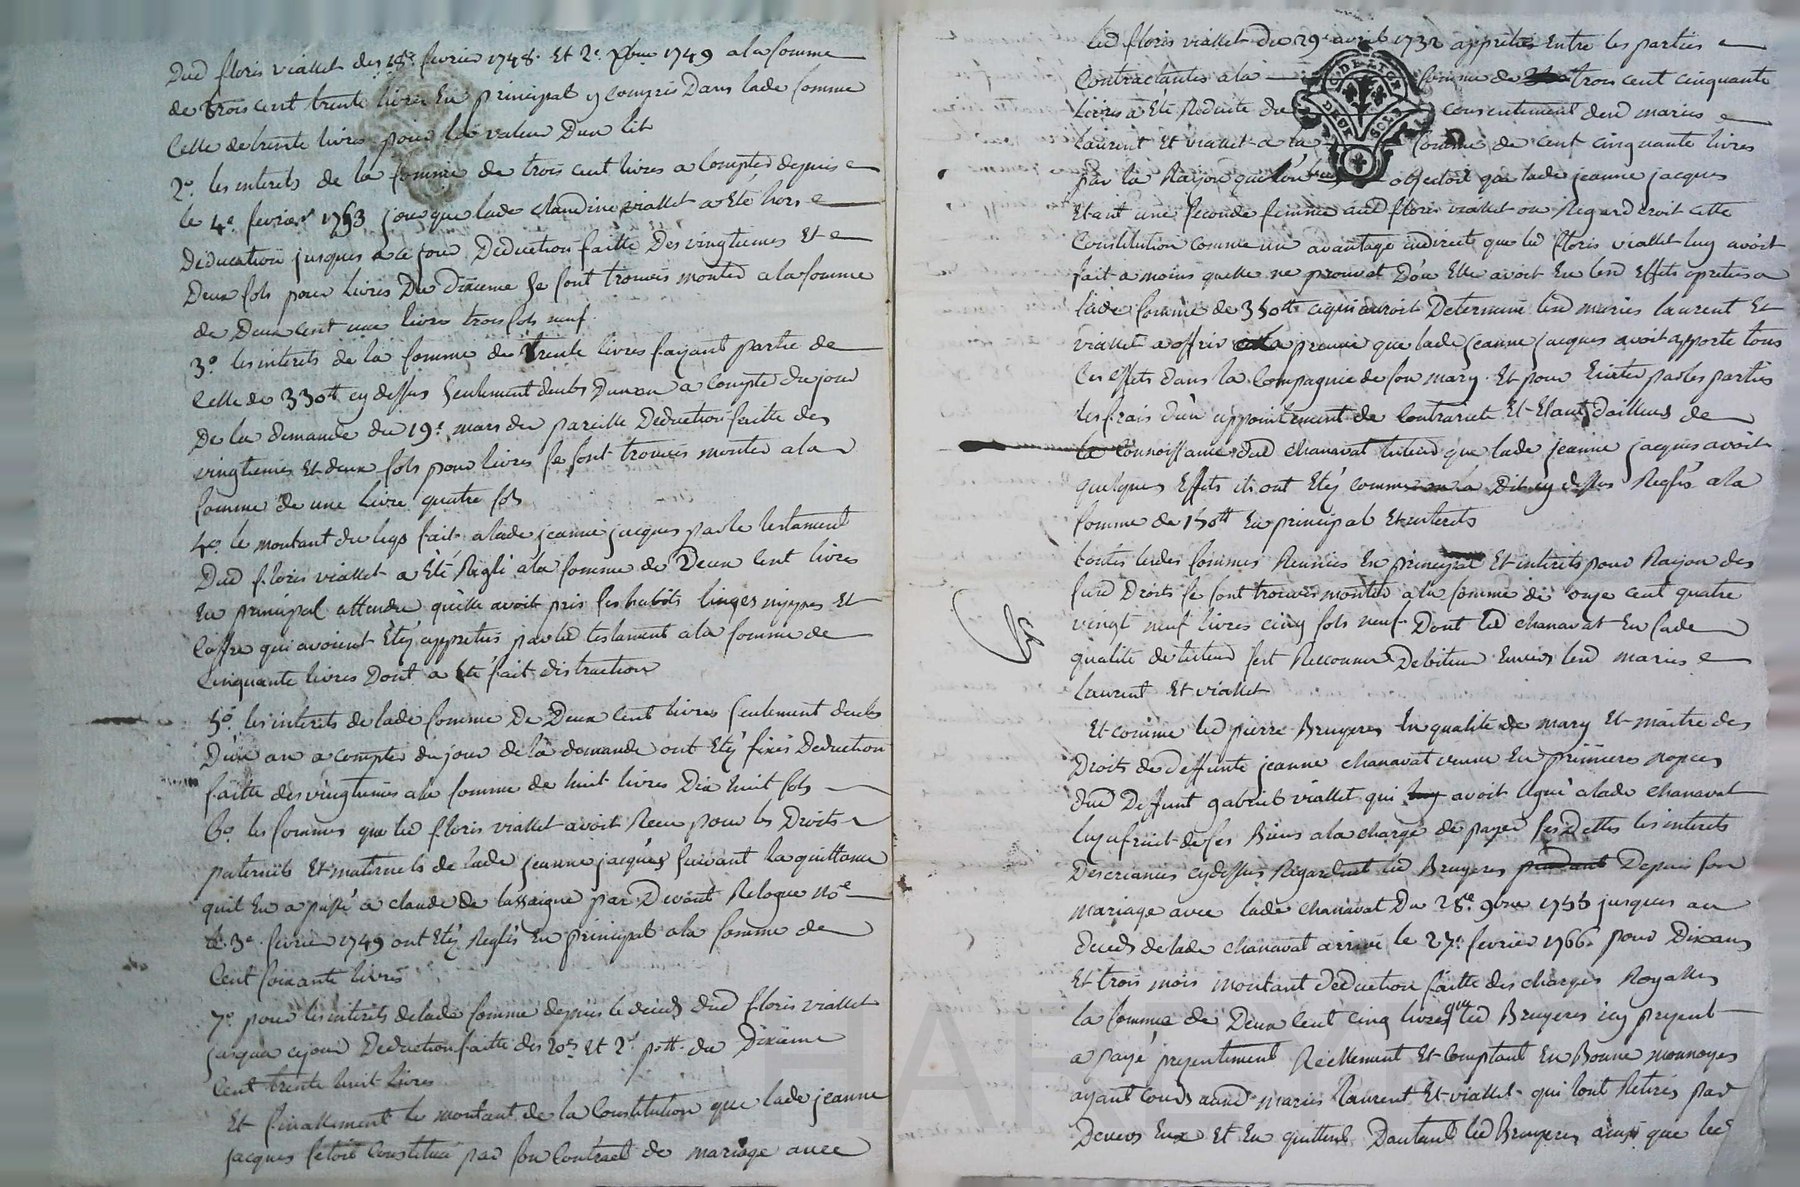 Dud floris viallet des 18e fevrier 1748. Et 2e Xbre 1749 a la somme
de trois cent trente livres En principal y compris Dans lade somme
Celle de trente livres pour la valeur Dun lit
2o. les interets de la somme de trois cent livres a Compter depuis
le 4e fevrier 1763 jour que lade Claudine viallet a Eté hors
Deducation jusques a ce jour Deduction faitte des vingtiemes Et
Deux sols pour livres Du Dixieme Se sont trouvés monter a la somme
de Deux cent une livre trois sols neuf.
3o. les interets de la somme de trente livres fayant partie de
Celle de 330tt cy dessus Seulement deubs Dun an a Compter du jour
De la demande du 19e mars der pareille Deduction faitte des
vingtiemes Et deux sols pour livres se sont trouvés monter a la
somme de une Livre quatre sols
4o. le montant du legs fait a lade jeanne jacques par le testament
Dud floris viallet a Eté Reglé a la somme de Deux Cent livres
En principal attendu quelle avoit pris ses habits linges nippes Et
Coffre qui avoient Etéj apprétiés par led testament a la somme de
Cinquante livres Dont a Eté fait distraction
5o. les interets de lade somme De Deux Cent livres Seulement deubs
D'un an a Compter du jour de la demande ont Etéj fixés Deduction
faitte des vingtiemes a la somme de huit livres Dix huit sols
6o. les sommes que led floris viallet avoit Recu pour les Droits
paternels Et maternels de lade jeanne jacques suivant la quittance
quil En a passé a claude de lassaigne par Devant Relogue Nore
le 3e fevrier 1749 ont Etéj Reglés En principal a la somme de
Cent soixante livres
7o. pour les interets de lade somme depuis le deceds dud floris viallet
jusqua ce jour Deduction faitte des 20es Et 2s. p.tt. du Dixieme
Cent trente huit livres
Et finallement le montant de la Constitution que lade jeanne
jacques s'étoit Constitué par son Contract de mariage avec
led floris viallet du 29e avril 1732 apprétiés Entre les parties
Contractantes a la somme de trois cent cinquante
livres a Eté Reduite du consentement desd mariés
Laurent Et viallet a la somme de cent cinquante livres
Par la Raison que l'on objectoit que lade jeanne jacques
Etant une seconde femme aud floris viallet on Regarderoit cette
Constitution comme un avantage indirect que led floris viallet luy avoit
fait a moins quelle ne prouvat D'ou Elle avoit Eu lesd Effets apretiés a
lade somme de 350tt ce qui auroit Determiné lesd mariés laurent Et
viallet a offrir la preuve que lade jeanne jacques avoit apporté tous
Ces effets dans la Compagnie de son mary. Et pour Eviter par les parties
les frais d'un appointement de Contrarieté Et Etant d'ailleurs de
la Connoissance dud chanavat tuteur que lade jeanne jacques avoit
quelques Effets ils ont Etéj comme Dit cy dessus Reglés a la
somme de 150tt En principal Et interets
toutes lesdes sommes Reunies En principal Et interets pour Raison des
susd Droits se sont trouvés monter a la somme de onze Cent quatre
vingt neuf livres cinq sols neuf. Dont led chanavat En sade
qualité de tuteur s'est Reconnu Debiteur Envers lesd mariés
Laurent Et viallet
Et comme led pierre Bruyeres En qualité de mary Et maitre des
Droits de deffunte jeanne chanavat veuve En premieres nopces
dud Deffunt gabriel viallet qui avoit legué a lade chanavat
lusufruit de ses Biens a la charge de payer ses Dettes les interets
Des creances cy dessus Regardent led Bruyeres Depuis son
mariage avec lade chanavat Du 28e 9bre 1755 jusques au
deceds de lade chanavat arrivé le 27e fevrier 1766. pour Dix ans
Et trois mois montant Deduction faitte des charges Royalles
la somme de Deux Cent cinq livres que led Bruyeres icy present
a payé presentement Reellement Et Comptant En Bonne monnoye
ayant Cours auxd mariés Laurent Et viallet qui l'ont Retirés par
Devers Eux Et En quittent Dautant led Bruyeres ainsi que led